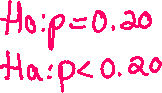 Ho:p=0.20
Ha:p<0.20